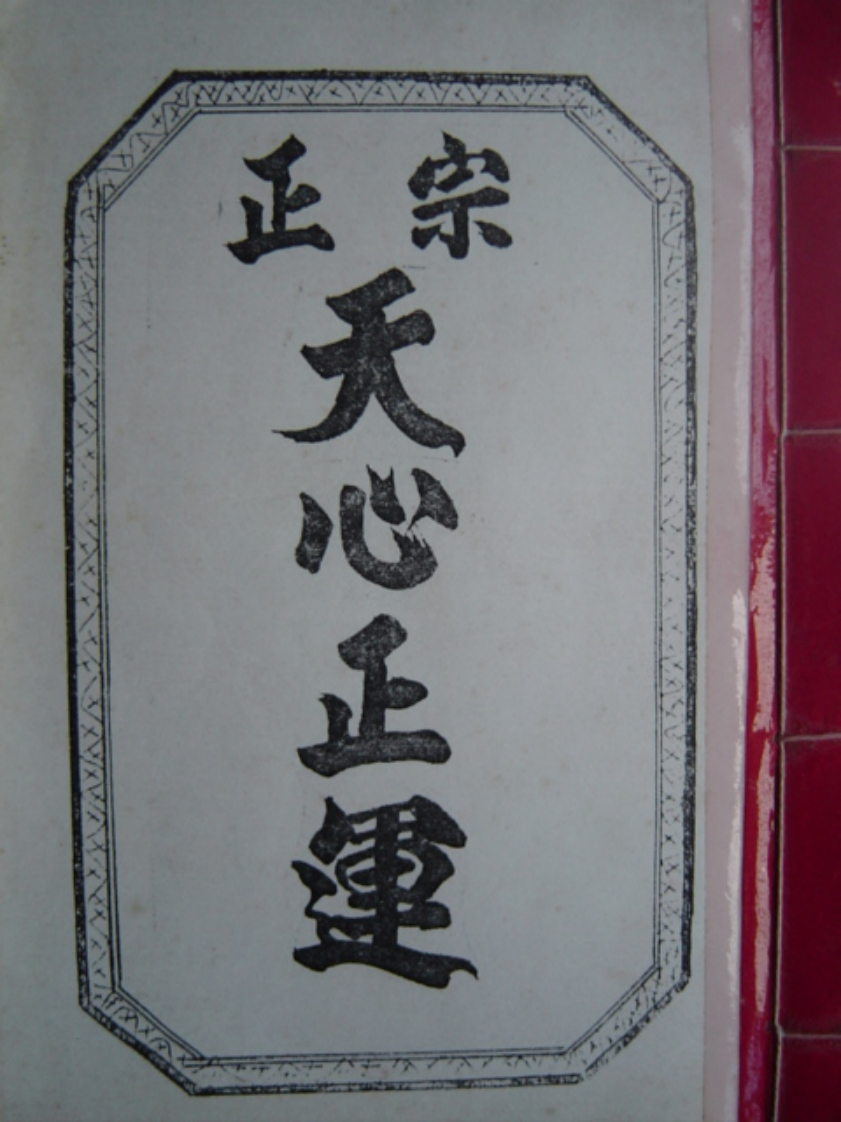 正宗
天心正運